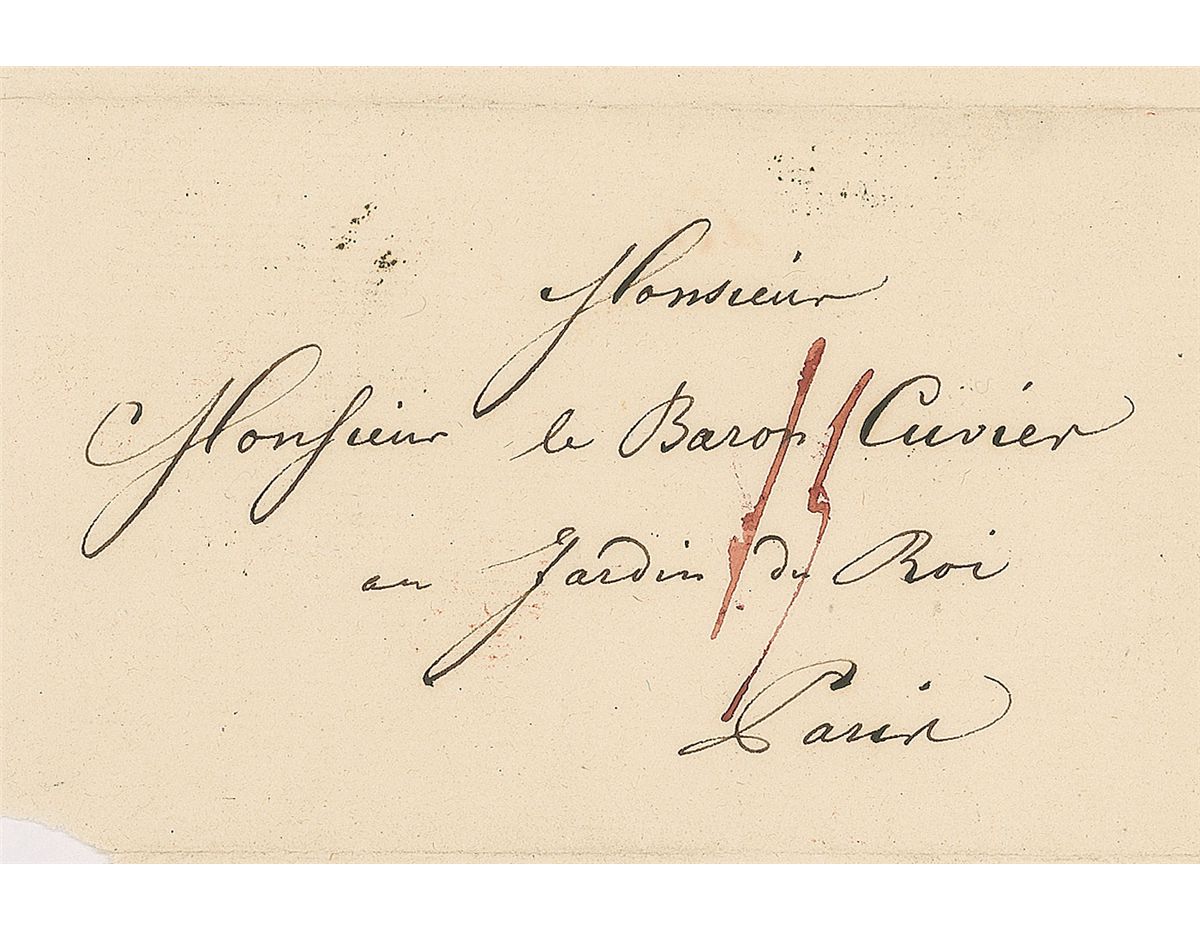 Monsieur
Monsieur le Baron Cuvier
au Jardin du Roi
Paris